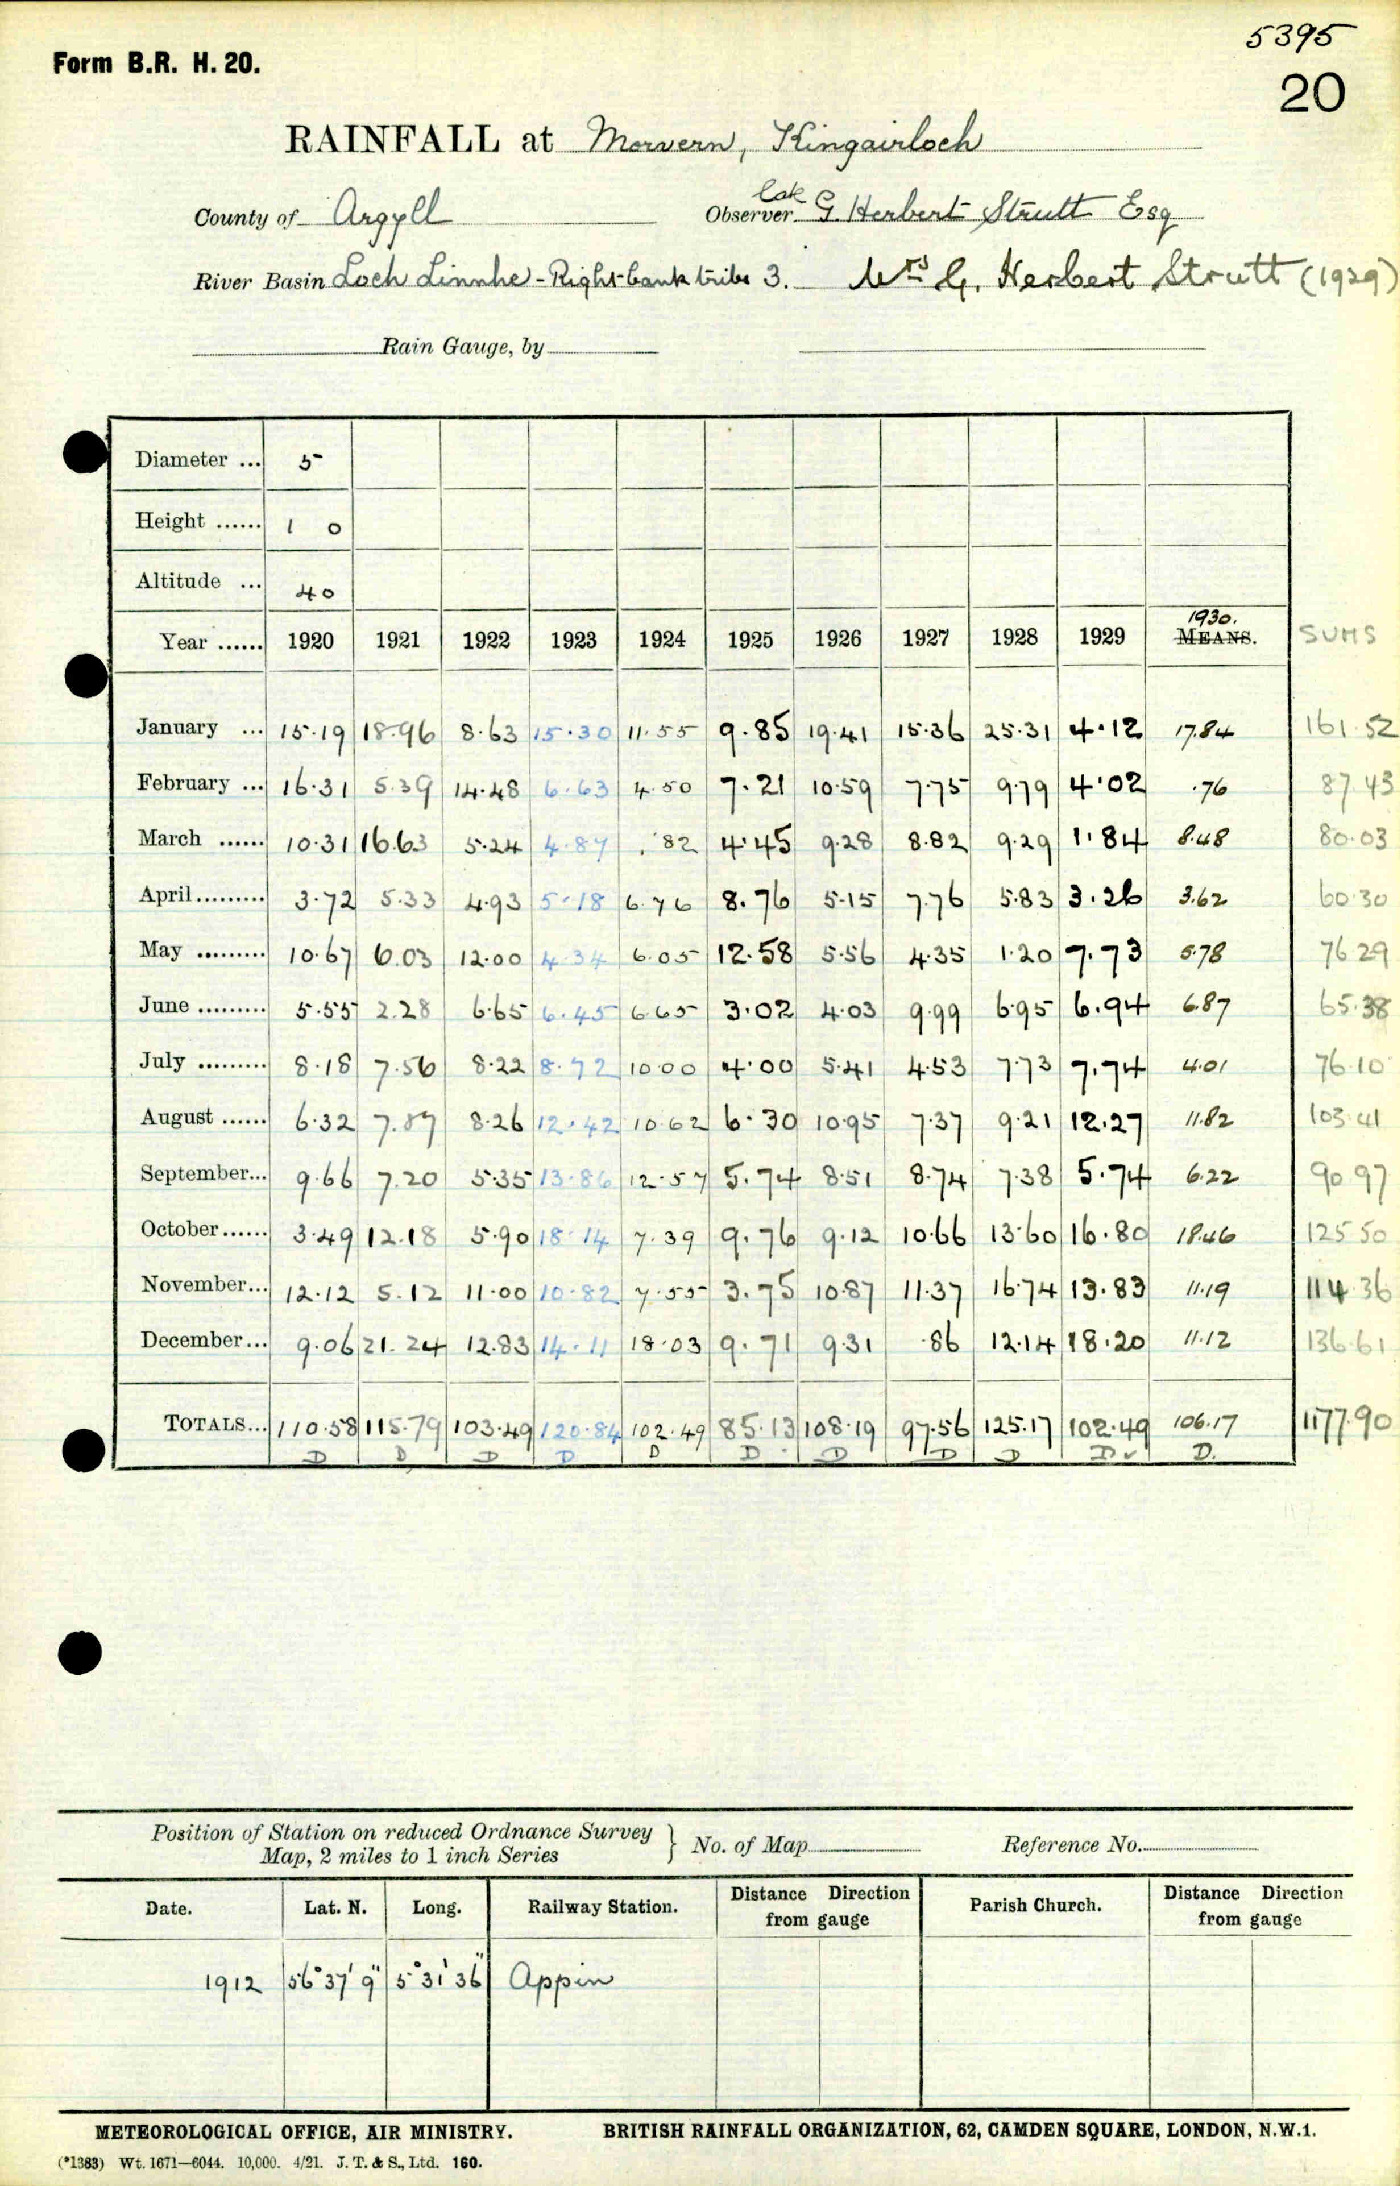 5395
Form B.R. H. 20.
20
RAINFALL at Morvern, Kingairloch
County of Argyll Observer late G. Herbert Strutt Esq
River Basin Loch Linnhe - Right bank tribs 3. Mrs G. Herbert Strutt (1929)
Rain Gauge, by
Diameter ... 5
Height ...... 1 0
Altitude ... 40
Year ...... 1920 1921 1922 1923 1924 1925 1926 1927 1928 1929 1930. MEANS. SUMS
January ... 15.19 18.96 8.63 15.30 11.55 9.85 19.41 15.36 25.31 4.12 17.84 161.52
February ... 16.31 5.39 14.48 6.63 4.50 7.21 10.59 7.75 9.79 4.02 .76 87.43
March ...... 10.31 16.63 5.24 4.87 .82 4.45 9.28 8.82 9.29 1.84 8.48 80.03
April......... 3.72 5.33 4.93 5.18 6.76 8.76 5.15 7.76 5.83 3.26 3.62 60.30
May ......... 10.67 6.03 12.00 4.34 6.05 12.58 5.56 4.35 1.20 7.73 5.78 76.29
June ......... 5.55 2.28 6.65 6.45 6.65 3.02 4.03 9.99 6.95 6.94 6.87 65.38
July ......... 8.18 7.56 8.22 8.72 10.00 4.00 5.41 4.53 7.73 7.74 4.01 76.10
August ...... 6.32 7.87 8.26 12.42 10.62 6.30 10.95 7.37 9.21 12.27 11.82 103.41
September... 9.66 7.20 5.35 13.86 12.57 5.74 8.51 8.74 7.38 5.74 6.22 90.97
October...... 3.49 12.18 5.90 18.14 7.39 9.76 9.12 10.66 13.60 16.80 18.46 125.50
November... 12.12 5.12 11.00 10.82 7.55 3.75 10.87 11.37 16.74 13.83 11.19 114.36
December... 9.06 21.24 12.83 14.11 18.03 9.71 9.31 .86 12.14 18.20 11.12 136.61
TOTALS... 110.58 115.79 103.49 120.84 102.49 85.13 108.19 97.56 125.17 102.49 106.17 1177.90
D D D D D D D D D D ✓ D.
Position of Station on reduced Ordnance Survey
Map, 2 miles to 1 inch Series } No. of Map Reference No.
Date. Lat. N. Long. Railway Station. Distance Direction from gauge Parish Church. Distance Direction from gauge
1912 56° 37' 9" 5° 31' 36" Appin
METEOROLOGICAL OFFICE, AIR MINISTRY. BRITISH RAINFALL ORGANIZATION, 62, CAMDEN SQUARE, LONDON, N.W.1.
(*1383) Wt. 1671—6044. 10,000. 4/21. J. T. & S., Ltd. 160.